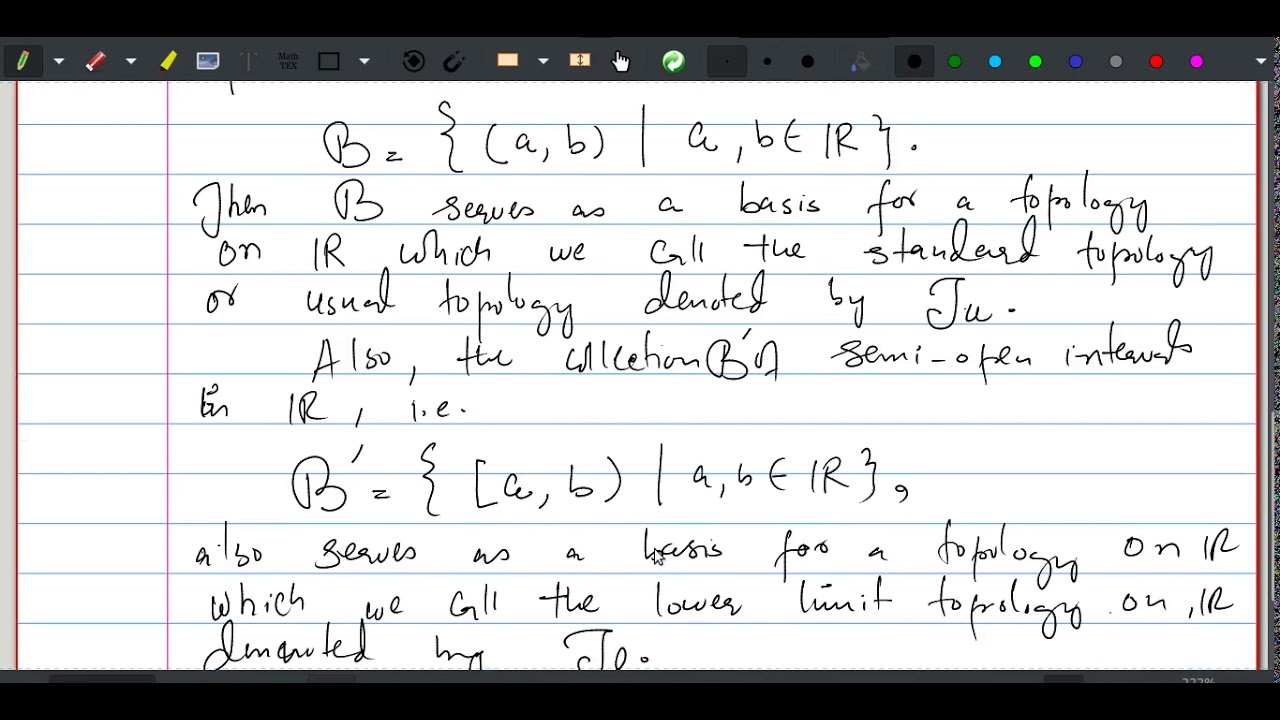 T
Math
TEX
B = { (a, b) | a, b ∈ IR }.
Then B serves as a basis for a topology
on IR which we call the standard topology
or usual topology denoted by Tu.
Also, the collection B' of semi-open intervals
in IR, i.e.
B' = { [a, b) | a, b ∈ IR },
also serves as a basis for a topology on IR
which we call the lower limit topology on IR
by Tl.